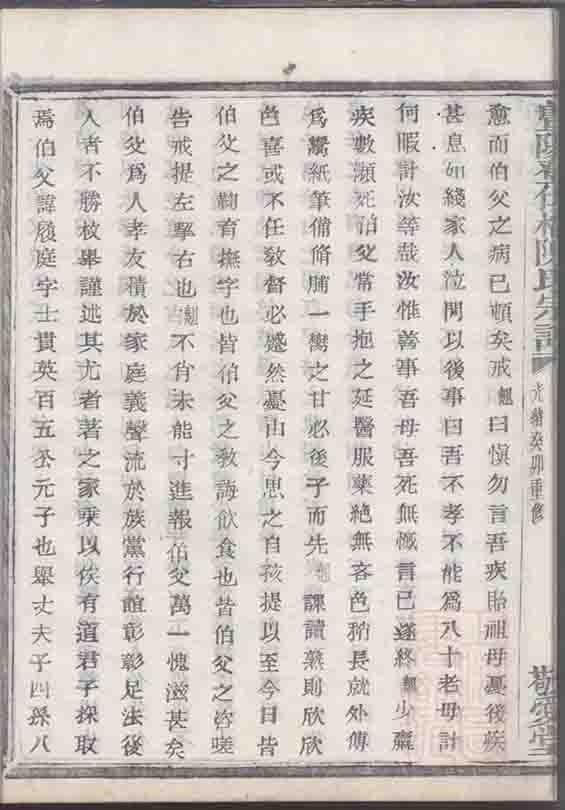 愈而伯父之病已頓矣戒翹曰愼勿言吾疾貽祖母憂後疾
甚息如綫家人泣問以後事曰吾不孝不能爲八十老母計
何暇計汝等哉汝惟善事吾母吾死無憾言已遂終翹少羸
疾數瀕死伯父常手抱之延醫服藥絶無吝色稍長就外傅
爲鬻紙筆備脩脯一臠之甘必後子而先翹課讀熟則欣欣
色喜或不任敎督必蹙然憂由今思之自孩提以至今日皆
伯父之鞠育撫字也皆伯父之敎誨飮食也皆伯父之咨嗟
告戒提左挈右也翹不肯未能寸進報伯父萬一愧滋甚矣
伯父爲人孝友積於家庭義聲流於族黨行誼彰彰足法後
人者不勝枚舉謹述其尤者著之家乘以俟有道君子採取
焉伯父諱殿庭字士貴英百五公元子也舉丈夫子四孫八
陳氏宗譜
光緒癸卯重修
敬愛堂